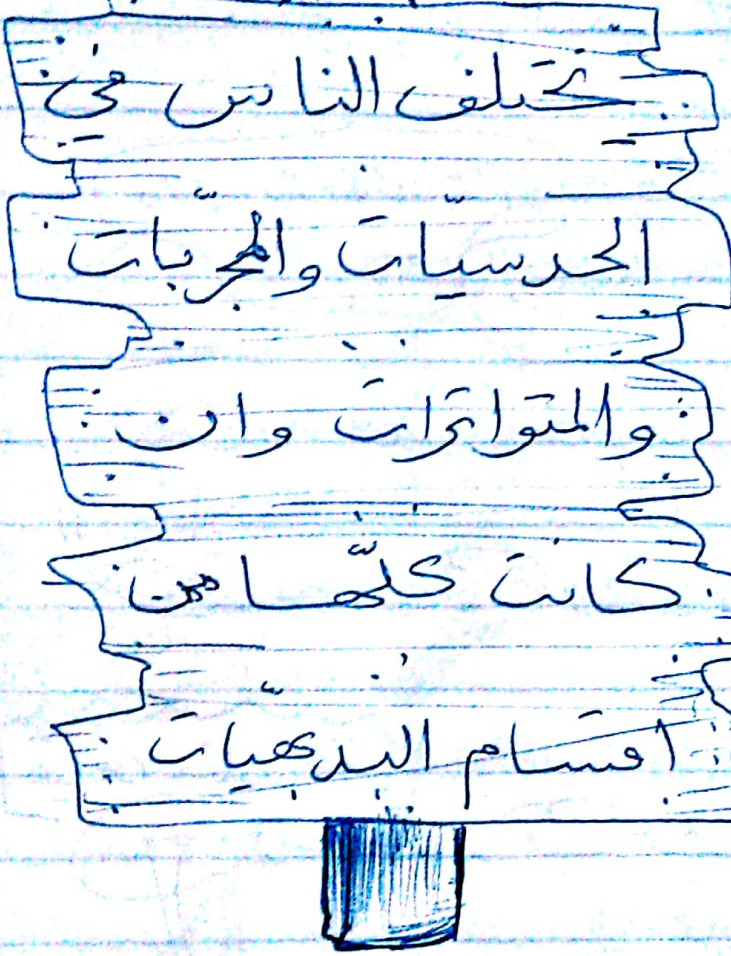 يختلف الناس في
الحدسيّات والمجرّبات
والمتواترات وان
كانت كلّها من
اقسام البديهيّات